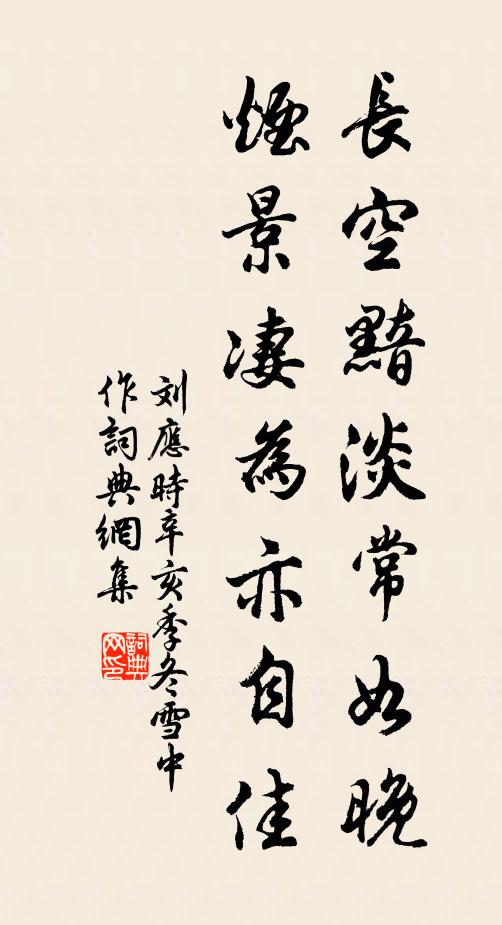 長空黯淡常如晚
煙景淒為亦自佳
刘應時辛亥季冬雪中
作詞典網集
詞典网印